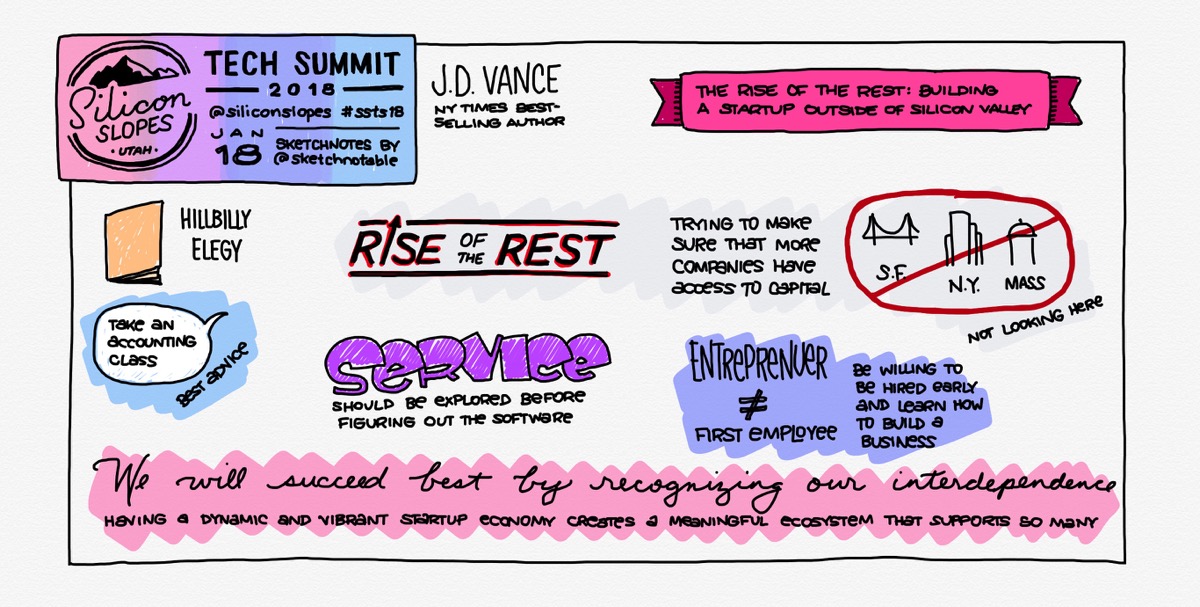 Silicon
SLOPES
• UTAH •
TECH SUMMIT
2018
@siliconslopes #ssts18
JAN
18
SKETCHNOTES BY
@sketchnotable
J.D. VANCE
NY TIMES BEST-
SELLING AUTHOR
THE RISE OF THE REST: BUILDING
A STARTUP OUTSIDE OF SILICON VALLEY
HILLBILLY
ELEGY
RISE OF THE REST
TRYING TO MAKE
SURE THAT MORE
COMPANIES HAVE
ACCESS TO CAPITAL
S.F.
N.Y.
MASS
NOT LOOKING HERE
TAKE AN
ACCOUNTING
CLASS
BEST ADVICE
SERVICE
SHOULD BE EXPLORED BEFORE
FIGURING OUT THE SOFTWARE
ENTREPRENUER
≠
FIRST EMPLOYEE
BE WILLING TO
BE HIRED EARLY
AND LEARN HOW
TO BUILD A
BUSINESS
We will succeed best by recognizing our interdependence
HAVING A DYNAMIC AND VIBRANT STARTUP ECONOMY CREATES A MEANINGFUL ECOSYSTEM THAT SUPPORTS SO MANY